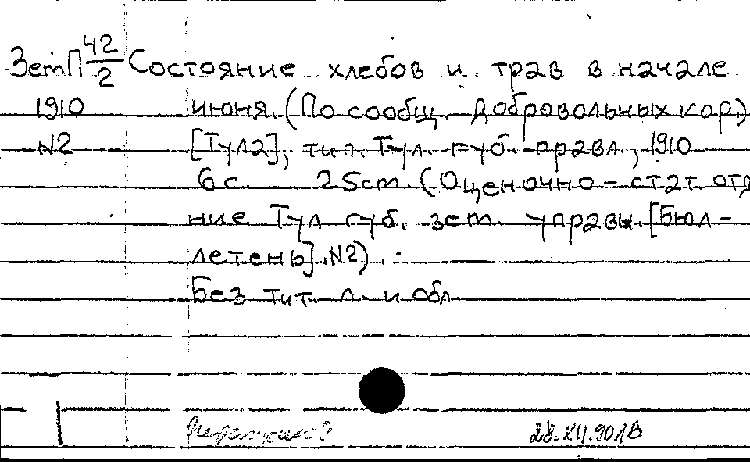 ЗемП 42/2 Состояние хлебов и трав в начале
1910 июня. (По сообщ. добровольных кор.)
N2 [Тула], тип. Тул. губ. правл., 1910
6 с. 25 cm. (Оценочно-стат. отд
ние Тул губ. зем. управы. [Бюл-
летень]. N2).
Без тит. л. и обл
28.XII.90г